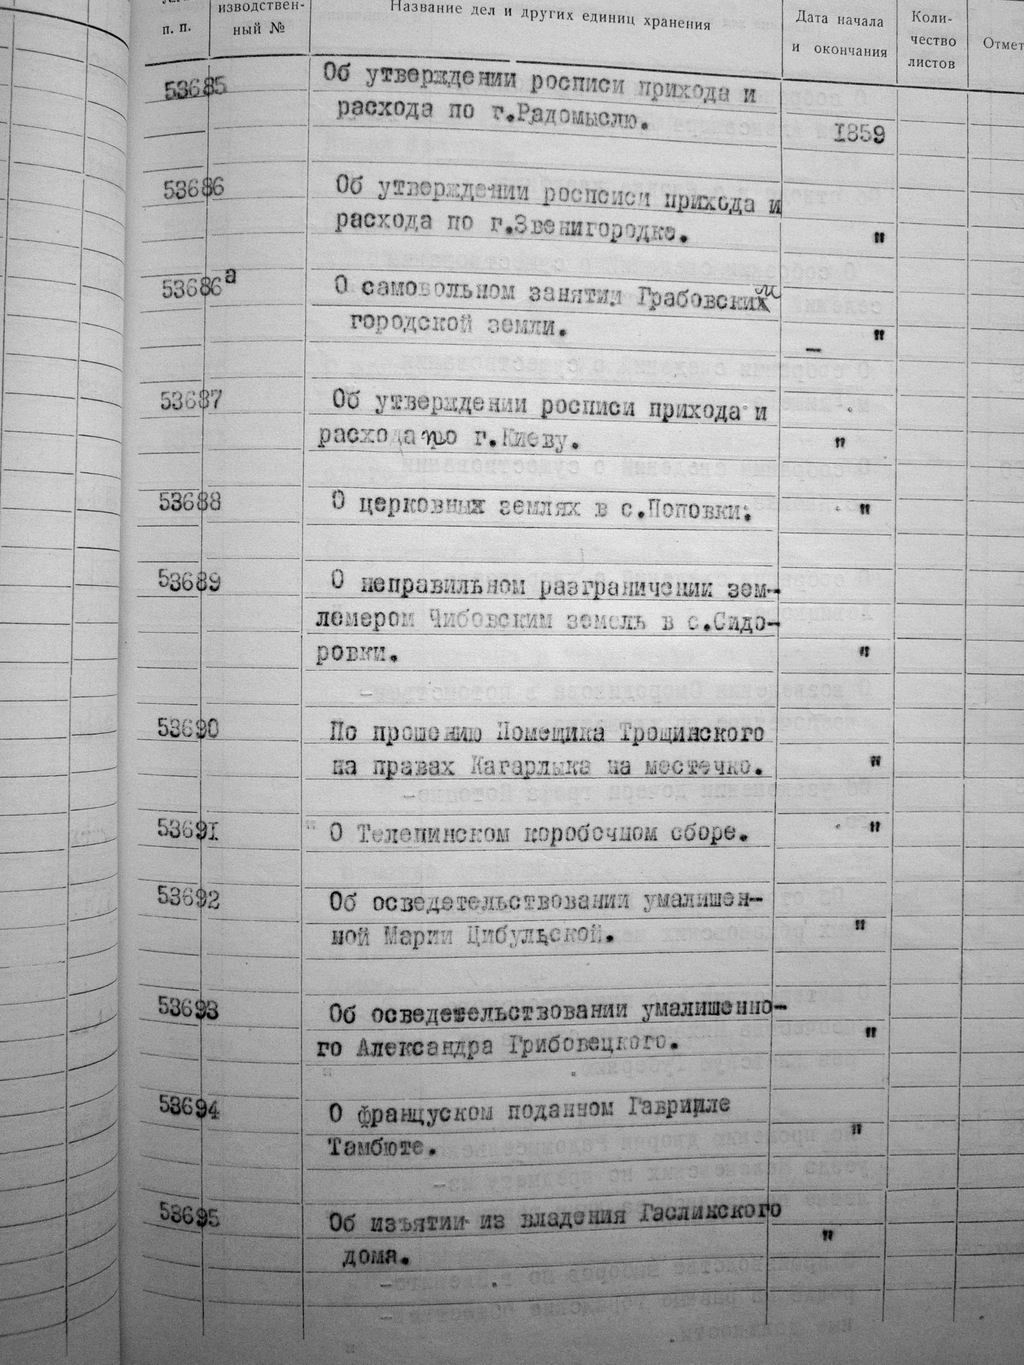 п. п.
изводствен-
ный №
Название дел и других единиц хранения
Дата начала
и окончания
Коли-
чество
листов
Отмет
53685 Об утверждении росписи прихода и
расхода по г.Радомыслю. 1859
53686 Об утверждении росписи прихода и
расхода по г.Звенигородке. "
53686а О самовольном занятии Грабовским
городской земли. "
53687 Об утверждении росписи прихода и
расхода по г.Киеву. "
53688 О церковных землях в с.Поповки. "
53689 О неправильном разграничении зем-
лемером Чибовским земель в с.Сидо-
ровки. "
53690 По прошению Помещика Трощинского
на правах Кагарлыка на местечко. "
53691 О Телепинском коробочном сборе. "
53692 Об осведетельствовании умалишен-
ной Марии Цибульской. "
53693 Об осведетельствовании умалишенно-
го Александра Грибовецкого. "
53694 О француском поданном Гаврииле
Тамбюте. "
53695 Об изъятии из владения Гаслинского
дома. "